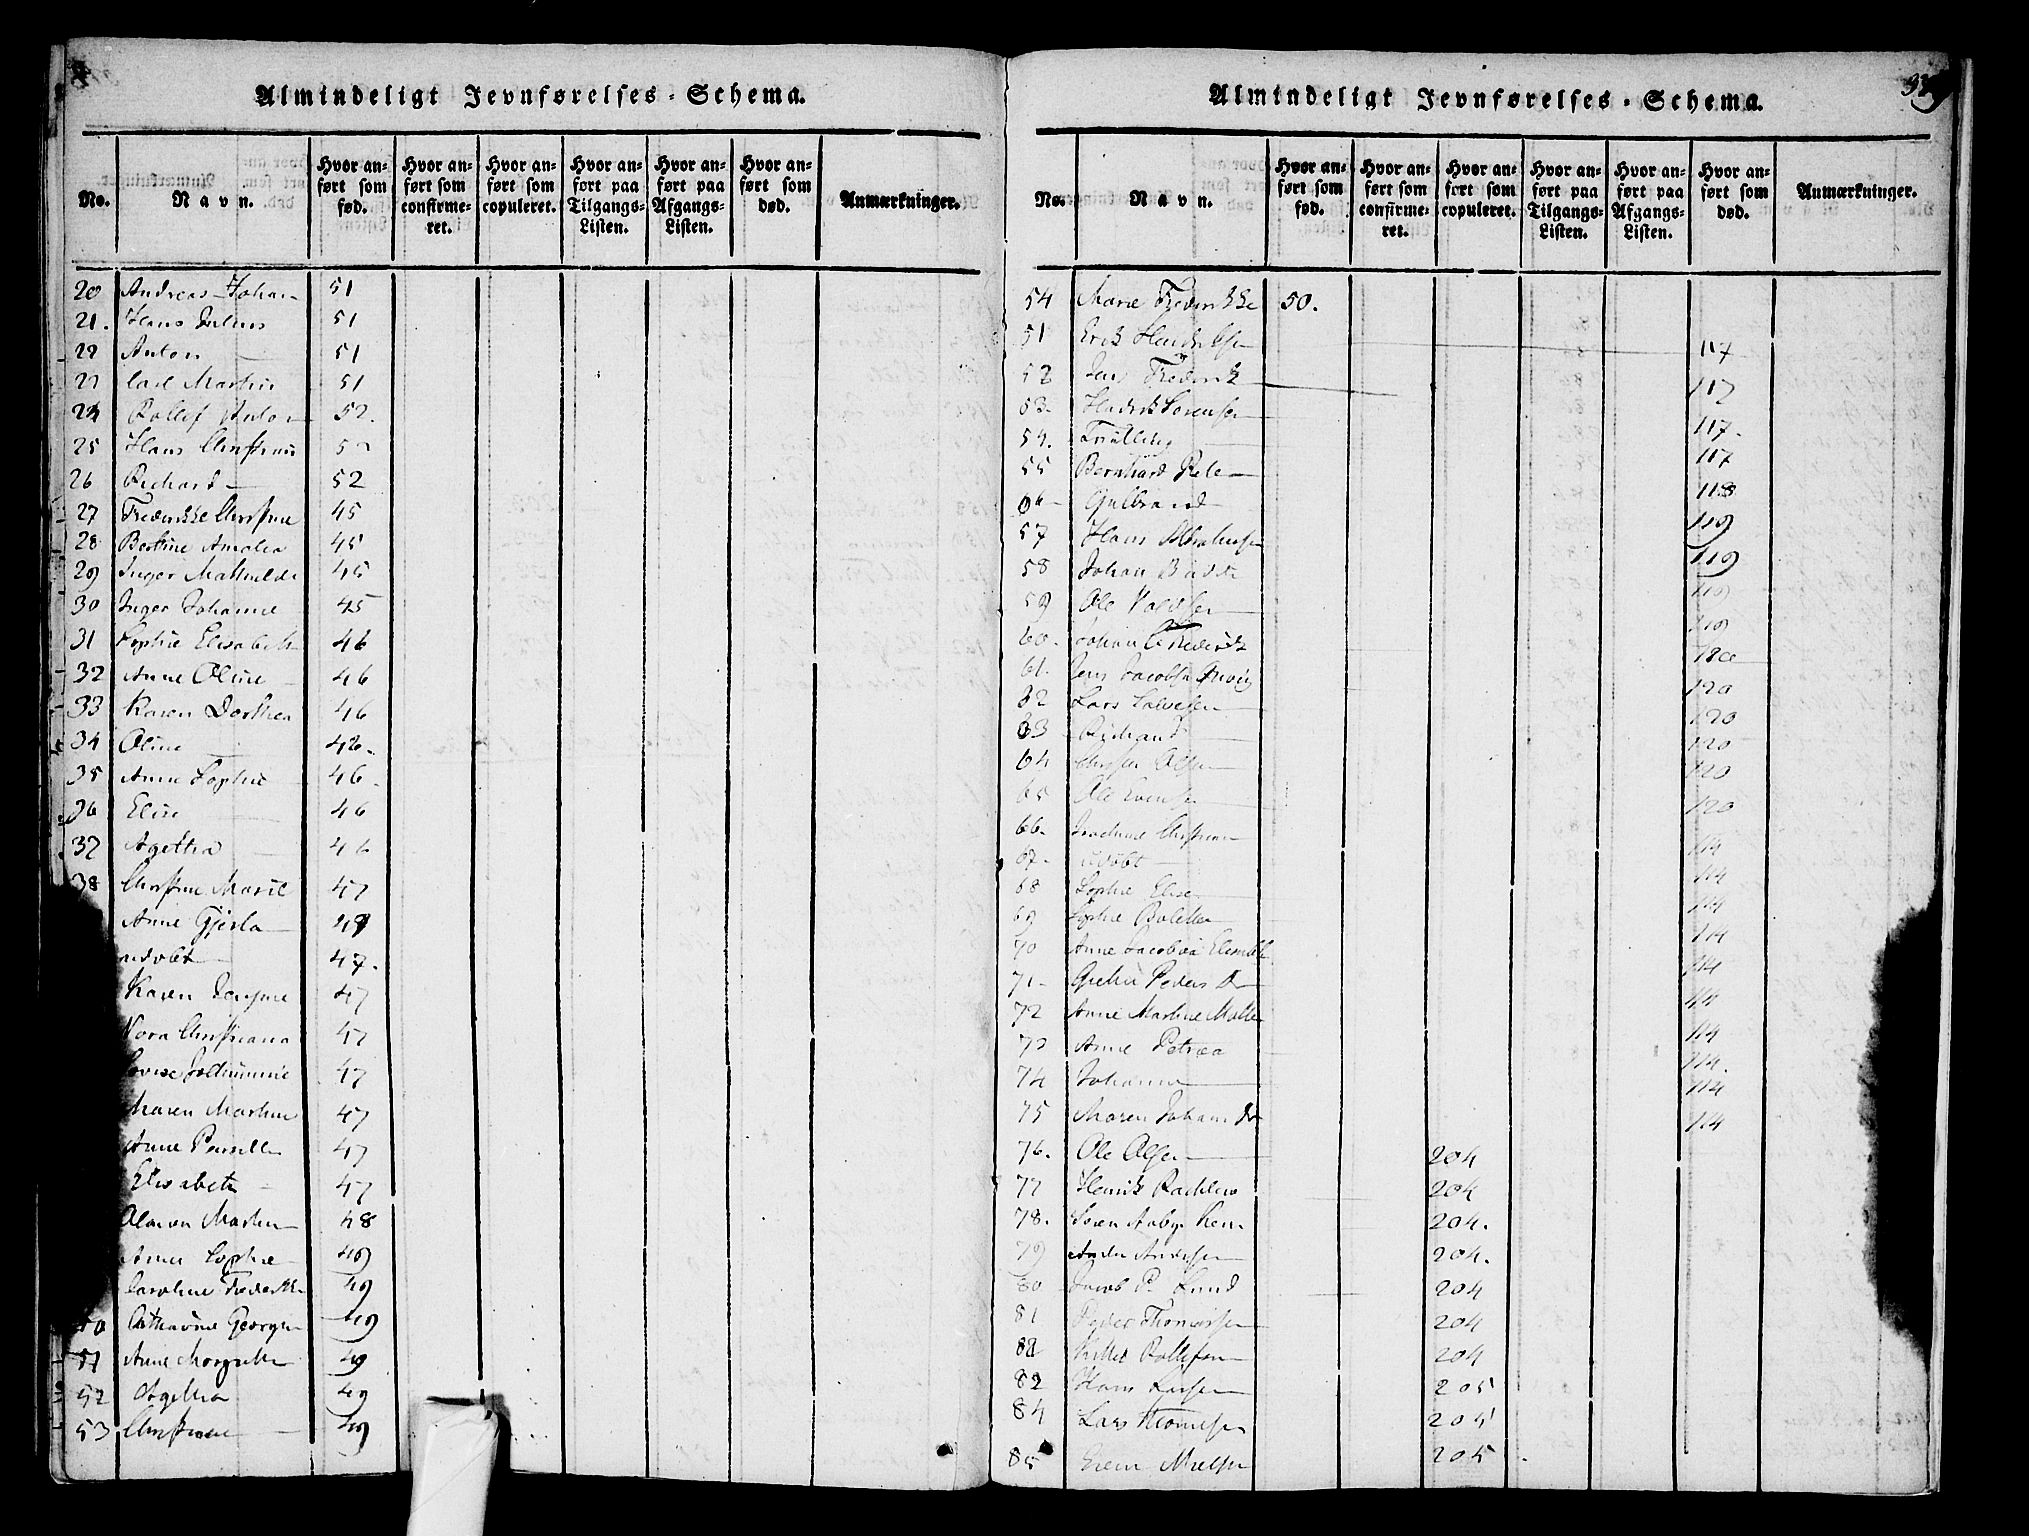 Almindeligt Jevnførelses-Schema.
No. Navn. Hvor anført som fød. Hvor anført som confirmeret. Hvor anført som copuleret. Hvor anført paa Tilgangs-Listen. Hvor anført paa Afgangs-Listen. Hvor anført som død. Anmærkninger.
20 Andreas Johan 51
21. Hans Julius 51
22 Anton 51
23 Carl Martin 51
24 Rollef Anton 52.
25 Hans Christian 52
26 Richard 52
27 Frederikke Christine 45
28 Bertine Amalia 45
29 Inger Mathilde 45
30 Inger Johanne 45
31 Sophie Elisabeth 46
32 Anne Oline 46
33 Karen Dorthea 46
34 Oline 46.
35 Anne Sophie 46.
36 Elise 46
37 Agetha 46
38 Christine Marie 47
Anne Gjerla 47
udøbt 47.
Karen 47
Nora Christiana 47
47
Maren Martine 47
Anne Pernille 47
Elisabeth 47
Martin 48
Anne Sophie 49
Caroline Frederikke 49
50 Cathavine Georgine 49
51 Anne Margrethe 49
52 Agetha 49
53 Christiane 49
339
Almindeligt Jevnførelses-Schema.
No. Navn. Hvor anført som fød. Hvor anført som confirmeret. Hvor anført som copuleret. Hvor anført paa Tilgangs-Listen. Hvor anført paa Afgangs-Listen. Hvor anført som død. Anmærkninger.
54 Marie Frederikke 50.
51 Erik Hendriksen 117
52 Jens Frederik 117
53. Hendrik Sørensen 117.
54. Tvilling 117
55 Bernhard 118
Gulbrand 119
57 Hans Abrahamsen 119
58 Johan 119
59 Ole 119
60. Johan Frederik 120
61. Jens Jacobsen 120
62 Lars 120
63 Richard 120
64 Olsen 120
65 Ole Evensen 120
66. Christiane 114
67. udøbt 114
68 Sophie Elise 114
69 Sophie Bolette 114
70 Anne Jacobia 114
71. Grethe Peders D 114
72 Anne Martine 114
73 Anne Petrea 114.
74 Johanne 114
75 Maren Johans D 114
76. Ole Olsen 204
77 Henrik Rachlew 204
78. Søren Aabye 204.
79 Anders Andersen 204.
80 Jacob P. Lund 204
81 Peder Thomassen 204
82 Kittel Rollefsen 204
83 Hans Larsen 205
84 Lars Thomesen 205
85 205